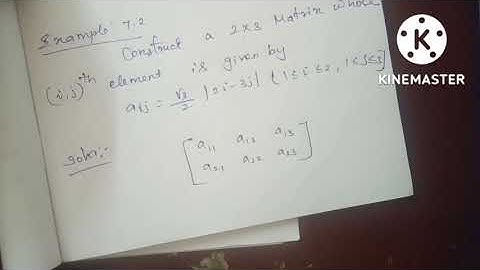 Example 7.2
Construct a 2x3 Matrix whose
(i,j)th element is given by
aij = √3/2 |2i-3j| (1≤i≤2, 1≤j≤3)
Soln:-
[a11 a12 a13
a21 a22 a23]
KINEMASTER